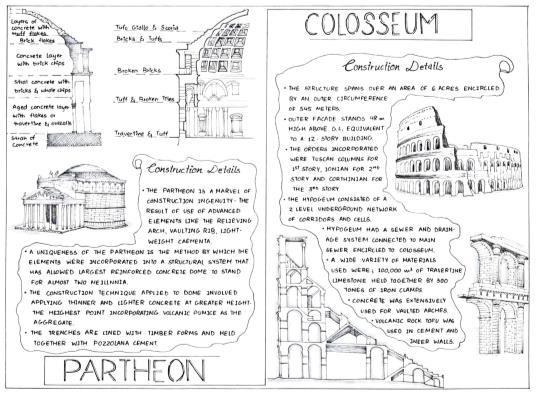 Layers of
concrete with
tuff flakes
Brick flakes
Concrete layer
with brick chips
Shell concrete with
bricks & whole chips
Aged concrete layer
with flakes of
travertine &
Strah of
Concrete
Tufo Giallo & Scoria
Bricks & Tuffs
Broken Bricks
Tuff & Broken Tiles
Travertine & Tuff
Construction Details
• THE PARTHEON IS A MARVEL OF
CONSTRUCTION INGENUITY- THE
RESULT OF USE OF ADVANCED
ELEMENTS LIKE THE RELIEVING
ARCH, VAULTING RIB, LIGHT-
WEIGHT CAEMENTA
• A UNIQUENESS OF THE PARTHEON IS THE METHOD BY WHICH THE
ELEMENTS WERE INCORPORATED INTO A STRUCTURAL SYSTEM THAT
HAS ALLOWED LARGEST REINFORCED CONCRETE DOME TO STAND
FOR ALMOST TWO MEILLINNIA.
• THE CONSTRUCTION TECHNIQUE APPLIED TO DOME INVOLVED
APPLYING THINNER AND LIGHTER CONCRETE AT GREATER HEIGHT.
THE HEIGHEST POINT INCORPORATING VOLCANIC PUMICE AS THE
AGGREGATE.
• THE TRENCHES ARE LINED WITH TIMBER FORMS AND HELD
TOGETHER WITH POZZOLANA CEMENT.
PARTHEON
COLOSSEUM
Construction Details
• THE STRUCTURE SPANS OVER AN AREA OF 6 ACRES ENCIRCLED
BY AN OUTER CIRCUMFERENCE
OF 545 METERS.
• OUTER FACADE STANDS 48 m
HIGH ABOVE G.L. EQUIVALENT
TO A 12- STORY BUILDING.
• THE ORDERS INCORPORATED
WERE TUSCAN COLUMNS FOR
1ST STORY, IONIAN FOR 2ND
STORY AND CORTHINIAN FOR
THE 3RD STORY
• THE HYPOGEUM CONSISTED OF A
2 LEVEL UNDERGROUND NETWORK
OF CORRIDORS AND CELLS.
• HYPOGEUM HAD A SEWER AND DRAIN-
AGE SYSTEM CONNECTED TO MAIN
SEWER ENCIRLED TO COLOSSEUM.
• A WIDE VARIETY OF MATERIALS
USED WERE; 100,000 m³ OF TRAVERTINE
LIMESTONE HELD TOGETHER BY 300
TONES OF IRON CLAMPS
• CONCRETE WAS EXTENSIVELY
USED FOR VAULTED ARCHES.
• VOLCANIC ROCK TOFU WAS
USED IN CEMENT AND
INEER WALLS.